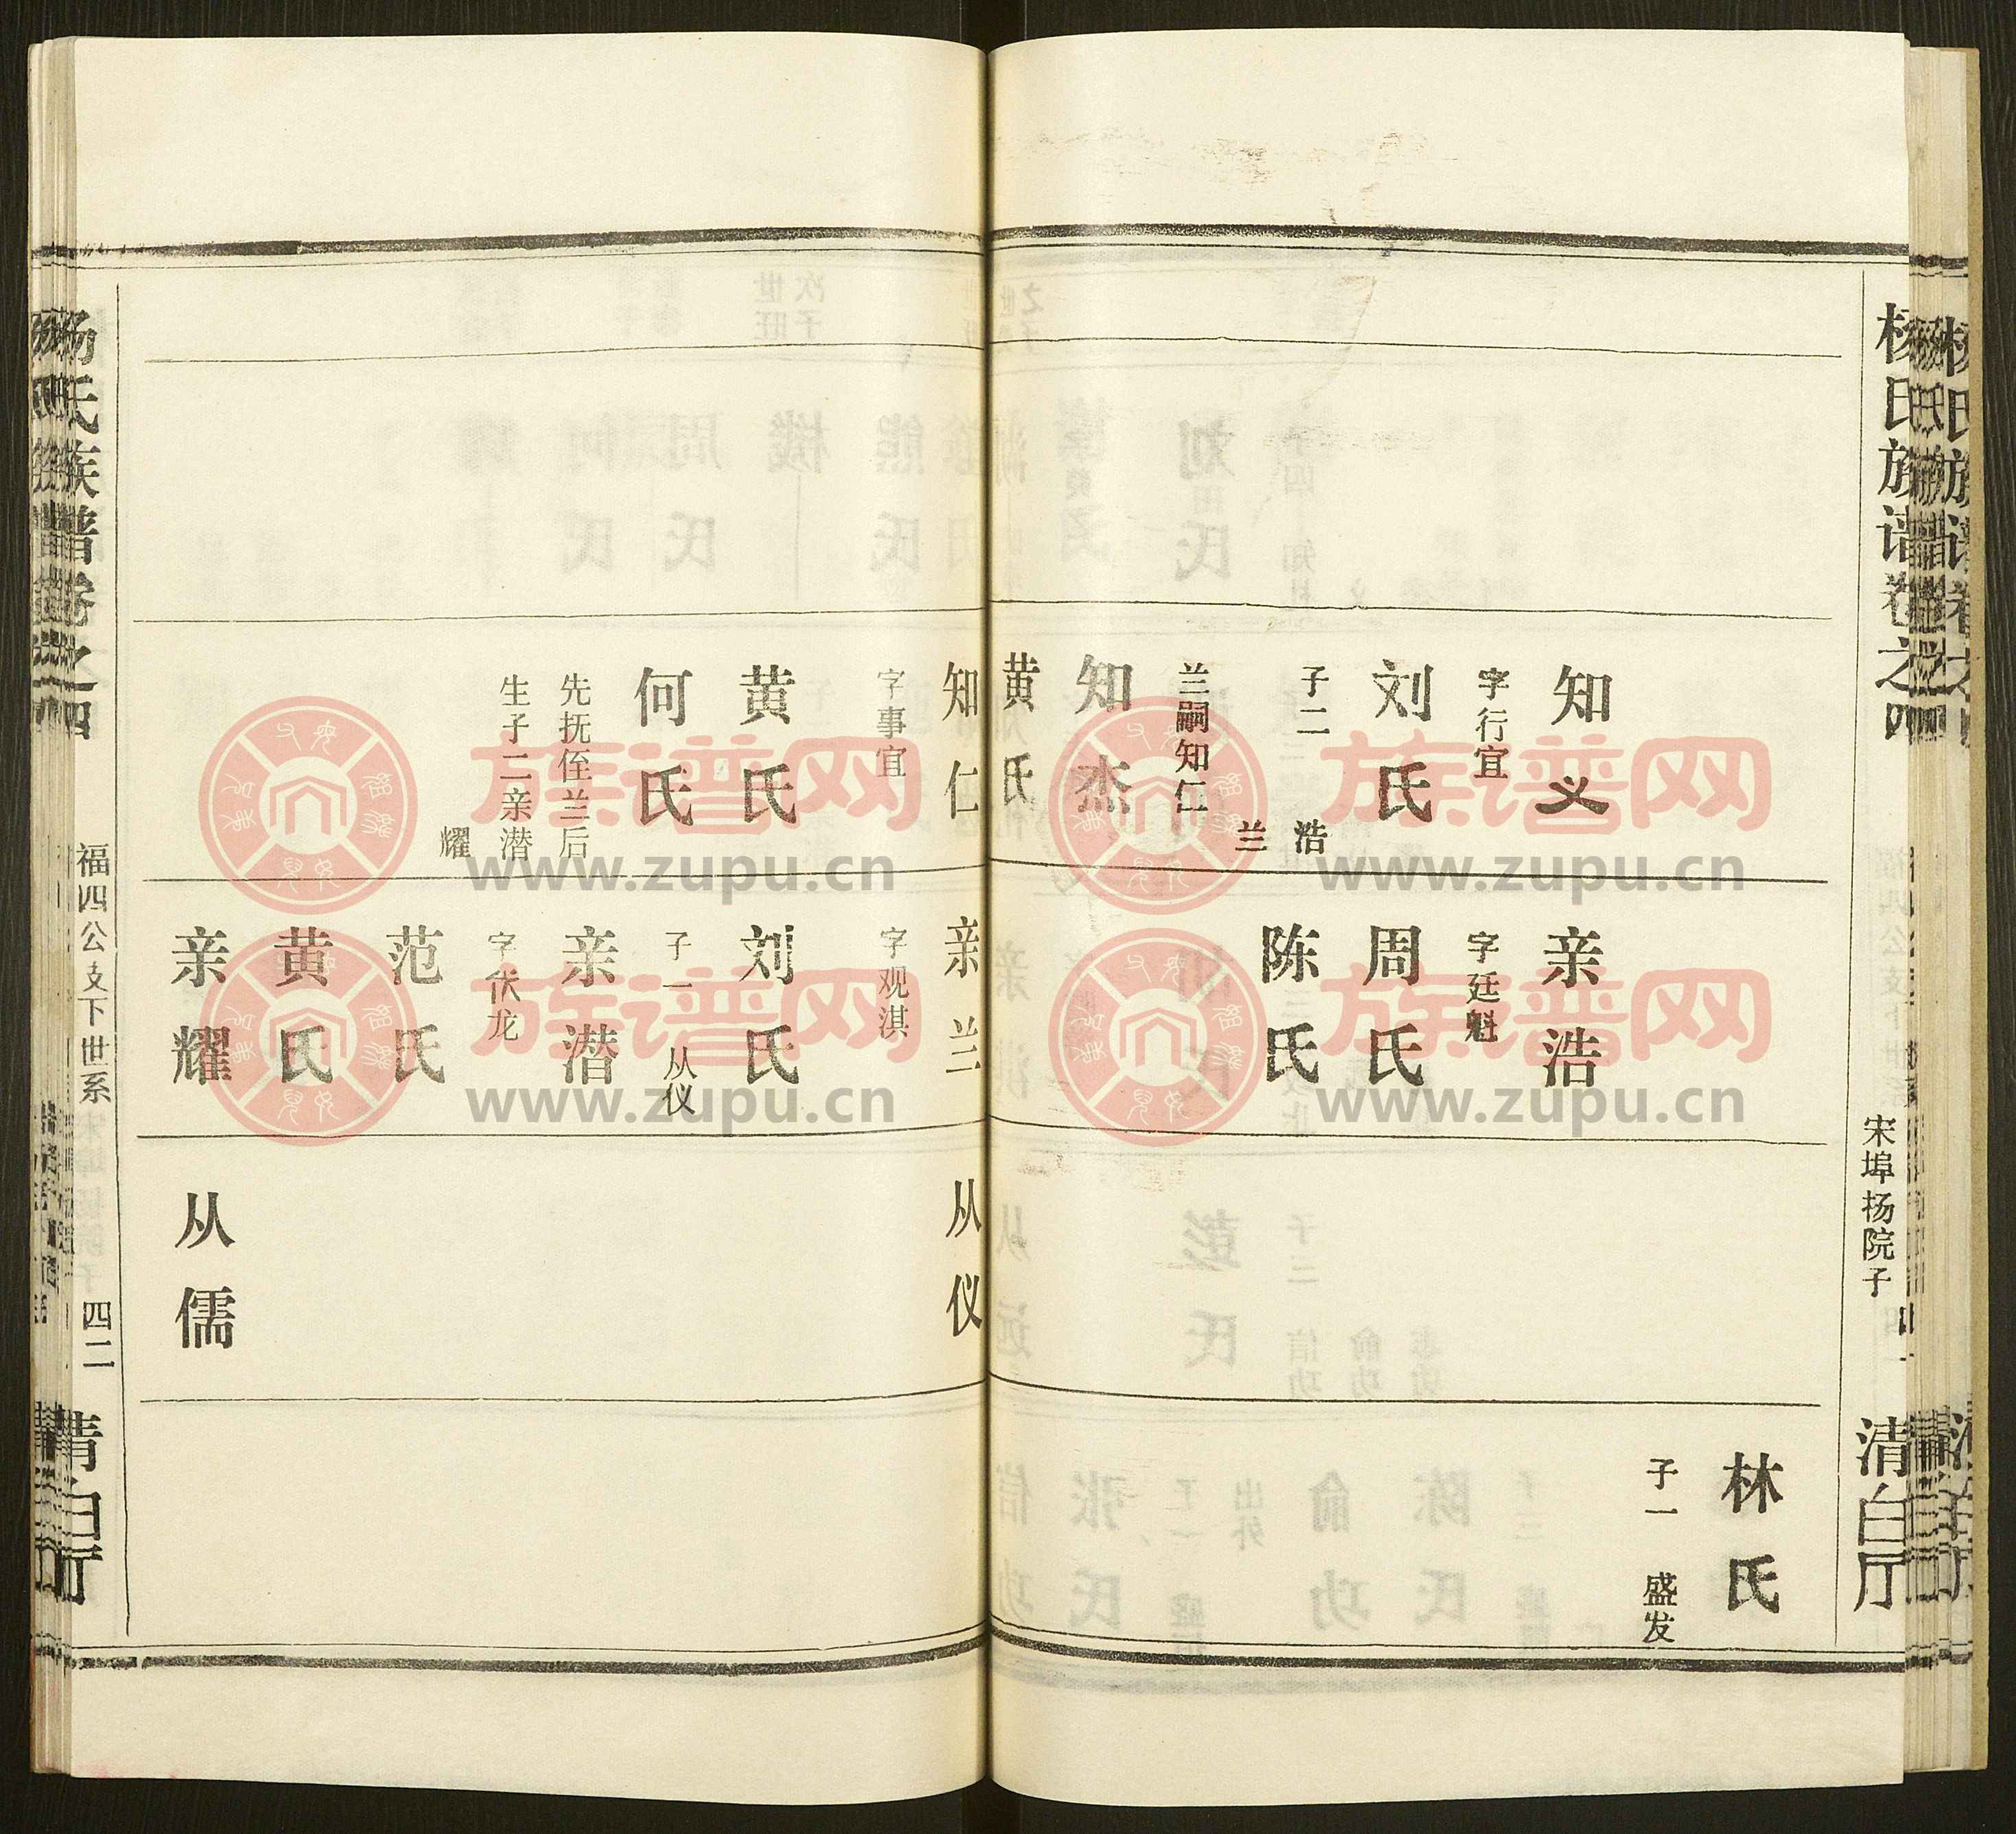 杨氏族谱卷之四
宋埠杨院子
四一
清白厅
知义
字行宜
刘氏
子二 浩
兰
兰嗣知仁
知杰
黄氏
亲浩
字廷魁
周氏
陈氏
林氏
子一 盛发
知仁
字事宜
黄氏
何氏
先抚侄兰后
生子二亲潜
耀
亲兰
字观淇
刘氏
子一 从仪
亲潜
字伏龙
范氏
黄氏
亲耀
从仪
从儒
杨氏族谱卷之四
福四公支下世系
四二
清白厅
族谱网
www.zupu.cn
族谱网
www.zupu.cn
族谱网
www.zupu.cn
族谱网
www.zupu.cn